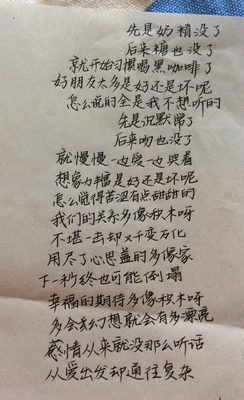 先是奶精没了
后来糖也没了
就开始习惯喝黑咖啡了
好朋友太多是好还是坏呢
怎么说的全是我不想听的
先是沉默常了
后来吻也没了
就慢慢一也爱一也哭着
想象力丰富是好还是坏呢
怎么觉得苦涩有点甜甜的
我们的关系多像积木呀
不堪一击却又千变万化
用尽了心思盖的多像家
下一秒终也可能倒塌
幸福的期待多像积木呀
多会幻想就会有多漂亮
感情从来就没那么听话
从爱出发却通往复杂